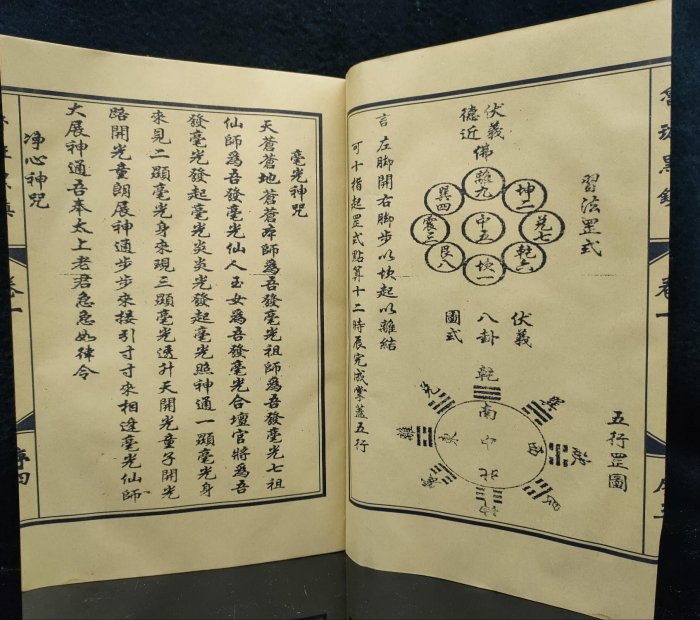 卷一
習法罡式
坤二
兌七
乾六
離九
中五
坎一
巽四
震三
艮八
伏義佛
德近
言 左脚開右脚步以坎起以離結
可十指起罡式點算十二時辰完成掌蓋五行
五行罡圖
伏義
八卦
圖式
乾
南
中
北
東
西
兌
離
毫光神咒
天蒼蒼地蒼蒼本師爲吾發毫光祖師爲吾發毫光七祖
仙師爲吾發毫光仙人玉女爲吾發毫光合壇官將爲吾
發毫光發起毫光炎炎光發起毫光照神通一顕毫光身
來見二顕毫光身來現三顕毫光透升天開光童子開光
路開光童朗展神通步步來接引寸寸來相逢毫光仙師
大展神通吾奉太上老君急急如律令
淨心神咒
卷一
序四